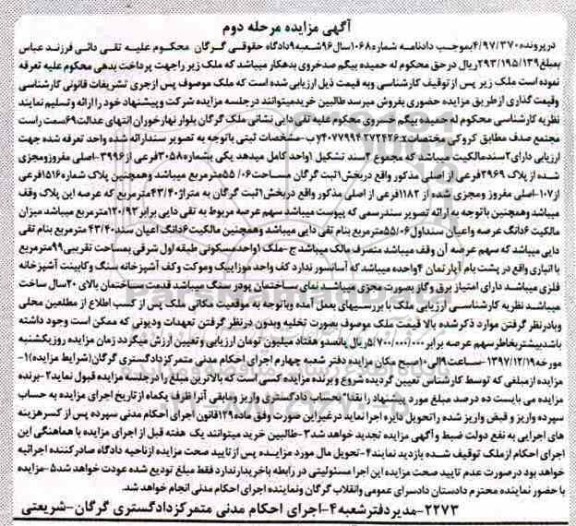 آگهی مزایده مرحله دوم
درپرونده ۴/۹۷/۳۷۰بموجب دادنامه شماره ۱۰۶۸سال۹۶شعبه۹دادگاه حقوقی گرگان محکوم علیه تقی دائی فرزند عباس
بمبلغ۲۹۳/۱۹۵/۱۳۹ریال درحق محکوم له حمیده بیگم صدخروی بدهکار میباشد که ملک زیر راجهت پرداخت بدهی محکوم علیه تعرفه
نموده است ملک زیر پس از توقیف کارشناسی وبه قیمت ذیل ارزیابی شده است که ملک موصوف پس ازجری تشریفات قانونی کارشناسی
وقیمت گذاری ازطریق مزایده حضوری بفروش میرسد طالبین خریدمیتوانند درجلسه مزایده شرکت وپیشنهاد خود راارائه وتسلیم نمایند
نظریه کارشناسی محکوم له حمیده بیگم خسروی محکوم علیه تقی دایی نشانی ملک گرگان بلوار نهارخوران انتهای عدالت۶۹سمت راست
مجتمع صدف مطابق کروکی مختصات:۲۷۲۴۲۶ ۴۰۷۷۹۹۴ب-مشخصات ثبتی باتوجه به تصویر سندارائه شده واحد تعرفه شده جهت
ارزیابی دارای۲سندمالکیت میباشدکه مجموع ۲سند تشکیل ۱واحد کامل میدهد یکی بشماره۳۰۵۸فرعی از۳۹۹۶-اصلی مفروزومجزی
شده از پلاک ۲۹۶۹فرعی از اصلی مذکور واقع دربخش۱ثبت گرگان مساحت۵۵/۰۶مترمربع میباشد وهمچنین پلاک شماره۱۵۱۶فرعی
از۱۰۷-اصلی مفروز ومجزی شده از ۱۱۸۲فرعی از اصلی مذکور واقع دربخش۱ثبت گرگان به متراژ۴۳/۴۰مترمربع که عرصه این پلاک وقف
میباشد وهمچنین باتوجه به ارائه تصویر سندرسمی که پیوست میباشد سهم عرصه مربوط به تقی دایی برابر۱۲۰/۹۲مترمربع میباشد میزان
مالکیت ۶دانگ عرصه واعیان سنداول۵۵/۰۶مترمربع بنام تقی دایی میباشد وهمچنین مالکیت۶دانگ اعیان سند۴۳/۴۰ مترمربع بنام تقی
دایی میباشد که سهم عرصه آن وقف میباشد متصرف مالک میباشد ج-ملک ۱واحدمسکونی طبقه اول شرقی بمساحت تقریبی۹۹مترمربع
با انباری واقع در پشت بام آپارتمان ۴واحده میباشد که آسانسور ندارد کف واحد موزاییک وموکت وکف آشپزخانه سنگ وکابینت آشپزخانه
فلزی میباشد دارای امتیاز برق وگاز بصورت مجزی میباشد نمای ساختمان پودر سنگ میباشد قدمت ساختمان بالای ۲۰سال ساخت
میباشد نظریه کارشناسی ارزیابی ملک با بررسیهای بعمل آمده وباتوجه به موقعیت مکانی ملک پس از کسب اطلاع از مطلعین محلی
وبادرنظر گرفتن موارد ذکرشده بالا قیمت ملک موصوف بصورت تخلیه وبدون درنظر گرفتن تعهدات ودیونی که ممکن است وجود داشته
باشدبیشترخاطرسهم عرصه برابر ۵/۷۰۰/۰۰۰/۰۰۰ریال پانصدو هفتاد میلیون تومان ارزیابی وتعیین ارزش میگردد زمان مزایده روزیکشنبه
مورخه۱۳۹۷/۱۲/۱۹-ساعت۹الی۱۰صبح مکان مزایده دفتر شعبه چهارم اجرای احکام مدنی متمرکزدادگستری گرگان(شرایط مزایده)۱-
مزایده ازمبلغی که توسط کارشناس تعیین گردیده شروع و برنده مزایده کسی است که بالاترین مبلغ رادرجلسه مزایده قبول نماید۲-برنده
مزایده می بایست ده درصد مبلغ مورد پیشنهاد را نقدا" بحساب دادگستری واریز ومابقی آنرا ظرف یکماه ازتاریخ اجرای مزایده به حساب
سپرده واریز و قبض واریز شده راتحویل دایره اجرا نماید درغیراین صورت وفق ماده۱۲۹قانون اجرای احکام مدنی سپرده پس از کسرهزینه
های اجرایی به نفع دولت ضبط وآگهی مزایده تجدید خواهد شد۳-طالبین خرید میتوانند یک هفته قبل از اجرای مزایده با هماهنگی این
اجرای احکام ازملک توقیف شده بازدید نمایند۴-تحویل مال مورد مزایده پس از تایید صحت مزایده ازناحیه دادگاه صادرکننده اجرائیه
خواهد بود درصورت عدم تایید صحت مزایده این اجرا مسئولیتی در رابطه باخریدارندارد فقط مبلغ تودیع شده عودت خواهد شد۵-مزایده
با حضور نماینده محترم دادستان دادسرای عمومی وانقلاب گرگان ونماینده اجرای احکام مدنی انجام خواهد شد.
۲۲۷۳-مدیردفترشعبه۴-اجرای احکام مدنی متمرکزدادگستری گرگان-شریعتی